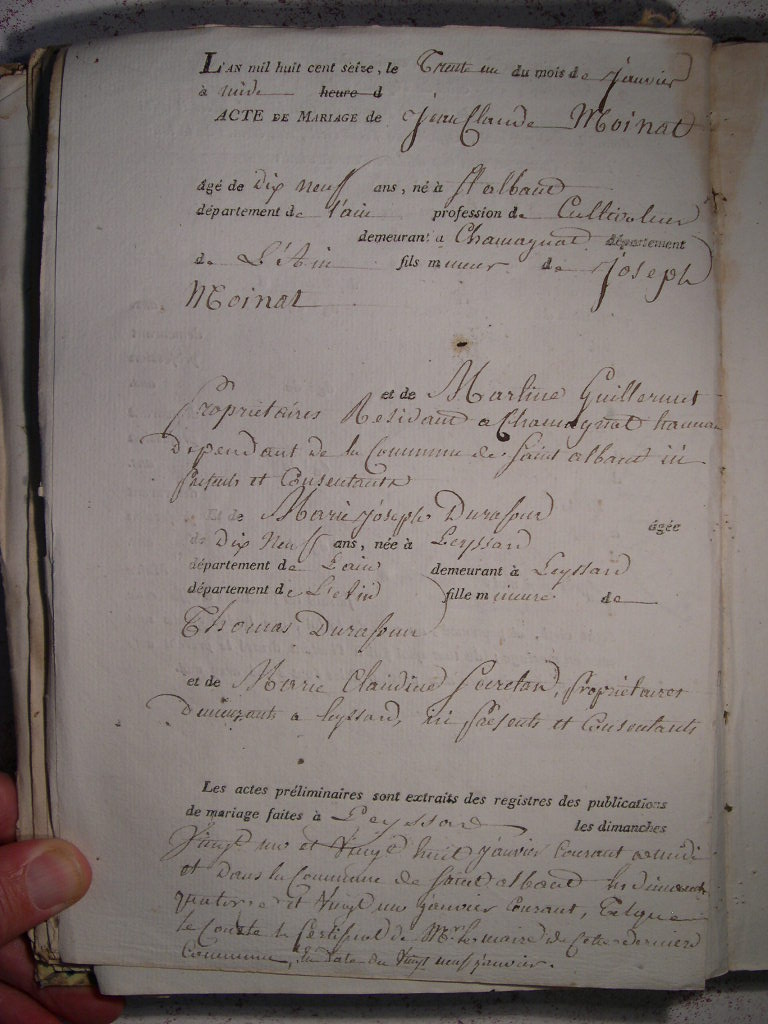 L'AN mil huit cent seize, le Trente un du mois de Janvier
à midi heure d
ACTE DE MARIAGE de Jean Claude Moinat
âgé de Dix neuf ans, né à St albant
département de l'ain profession de Cultivateur
demeurant a Chamagnat département
de L'Ain fils mineur de Joseph
Moinat
et de Martine Guillermet
Proprietaires Residant a Chamagnat hameau
dependant de la Commune de Saint albant ici
presents et Consentants
Et de Marie josephe Durafour âgée
de Dix Neuf ans, née à Leyssard
département de Lain demeurant à Leyssard
département de L'Ain fille mineure de
Thomas Durafour
et de Marie Claudine Savetan, proprietaires
Demeurants a leyssard, ici présents et Consentants
Les actes préliminaires sont extraits des registres des publications
de mariage faites à Leyssard les dimanches
Vingt un et Vingt huit janvier Courant a midi
et dans la Commune de Saint albant les dimanches
quatorze et Vingt un janvier Courant, Tel que
le Conste le Certificat de Mr le maire de Cette derniere
Commune, en date du Vingt neuf janvier.